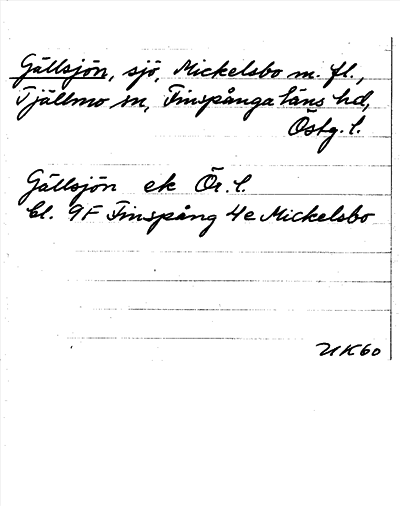 Gällsjön, sjö, Mickelsbo m. fl.,
Tjällmo sn, Finspånga läns hd,
Östg. l.
Gällsjön ek Ör. l.
bl. 9F Finspång 4e Mickelsbo
UK60